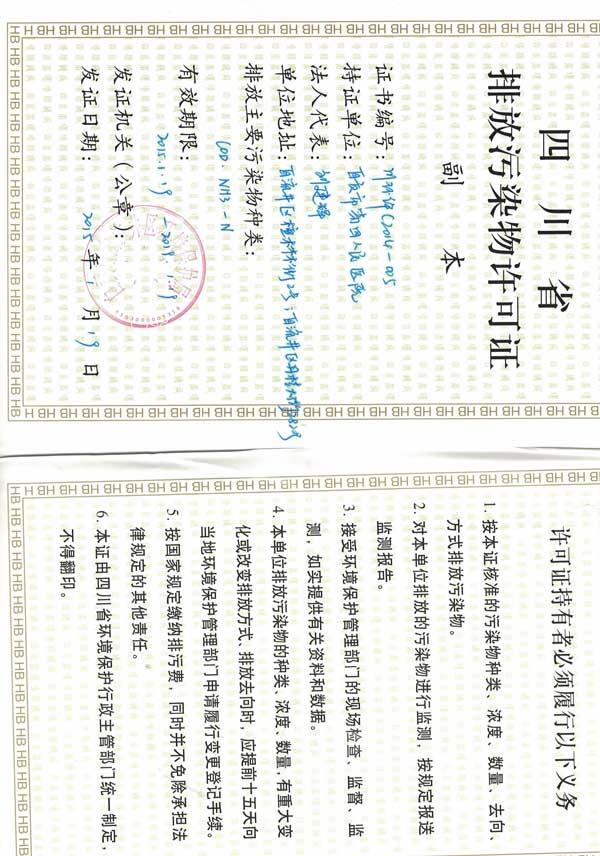 四川省
排放污染物许可证
副本
证书编号：川环许C2014-005
持证单位：自贡市第四人民医院
法人代表：
单位地址：自流井区檀木林街2号；自流井区
排放主要污染物种类：
COD、NH3-N
有效期限：
2015.1.19-2019.1.19
发证机关（公章）：
发证日期：2015年1月19日
许可证持有者必须履行以下义务
1. 按本证核准的污染物种类、浓度、数量、去向、
方式排放污染物。
2. 对本单位排放的污染物进行监测，按规定报送
监测报告。
3. 接受环境保护管理部门的现场检查、监督、监
测，如实提供有关资料和数据。
4. 本单位排放污染物的种类、浓度、数量，有重大变
化或改变排放方式、排放去向时，应提前十五天向
当地环境保护管理部门申请履行变更登记手续。
5. 按国家规定缴纳排污费，同时并不免除承担法
律规定的其他责任。
6. 本证由四川省环境保护行政主管部门统一制定，
不得翻印。